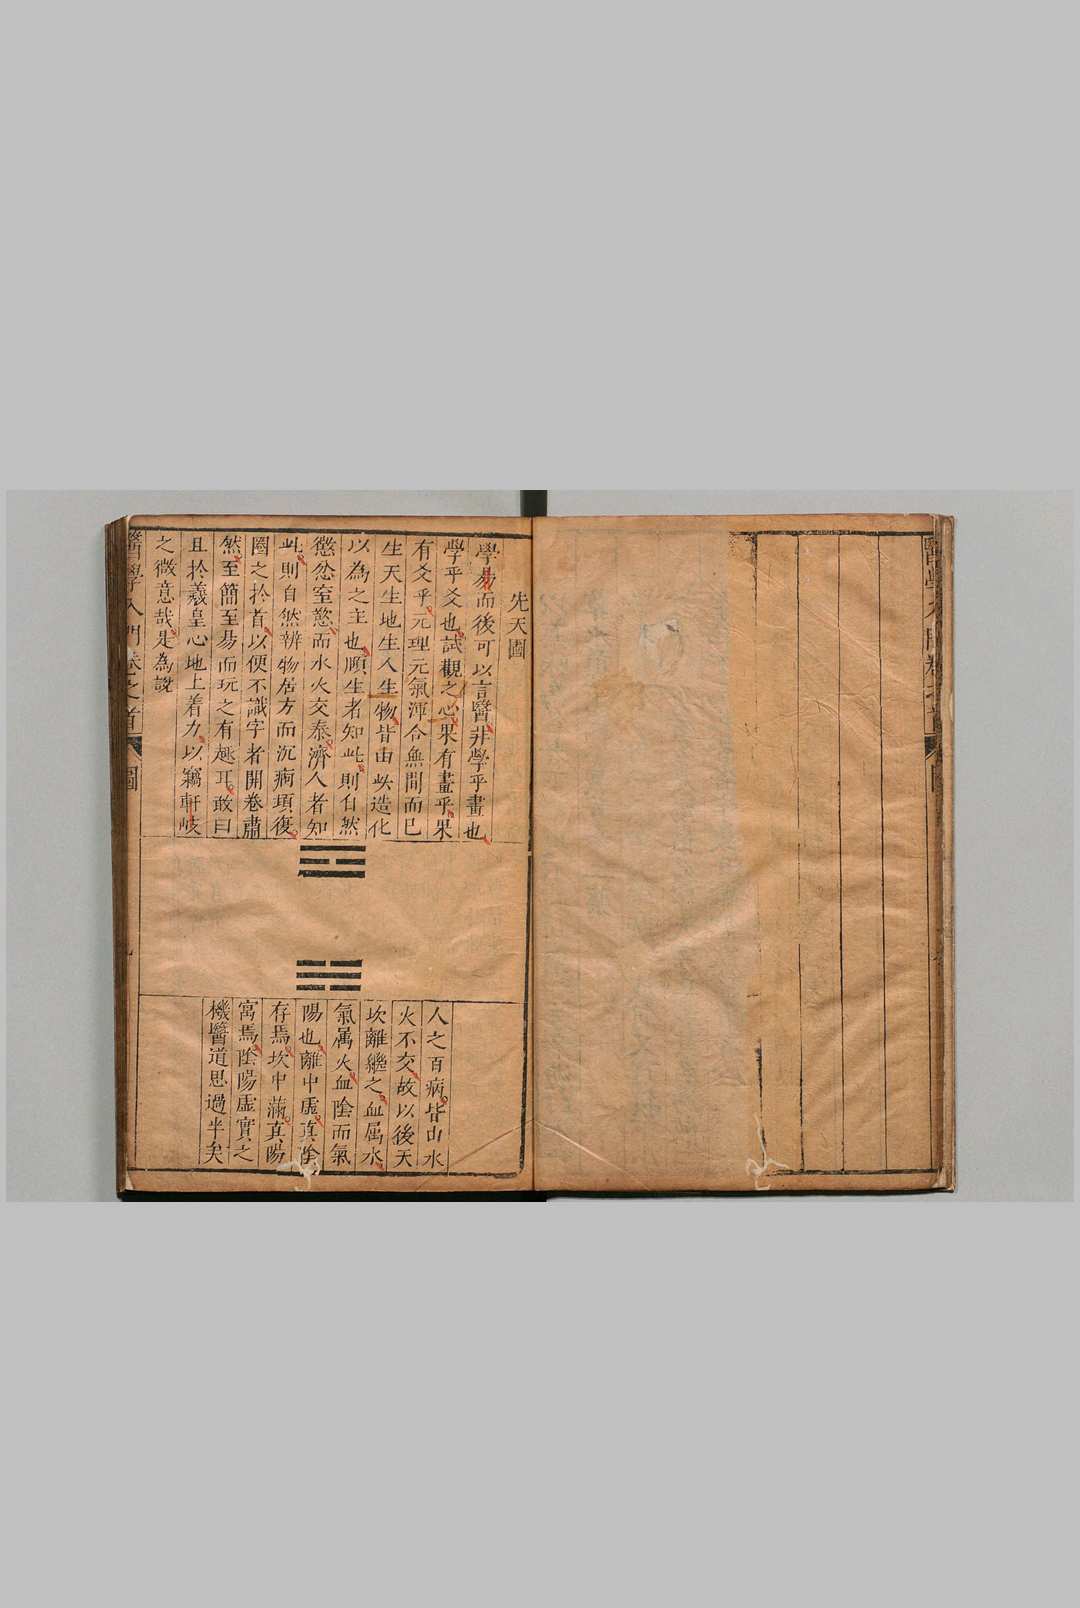 先天圖
學易而後可以言醫非學乎畫也
學乎爻也試觀之心果有畫乎果
有爻乎元理元氣渾合無間而已
生天生地生人生物皆由此造化
以為之主也順生者知此則自然
懲忿窒慾而水火交泰濟人者知
此則自然辨物居方而沉痾頓復
圖之於首以便不識字者開卷肅
然至簡至易而玩之有趣耳敢曰
且於羲皇心地上着力以竊軒岐
之微意哉是為說
人之百病皆由水
火不交故以後天
坎離繼之血属水
氣属火血陰而氣
陽也離中虛真陰
存焉坎中滿真陽
寓焉陰陽虛實之
機醫道思過半矣
醫學入門卷之首
圖